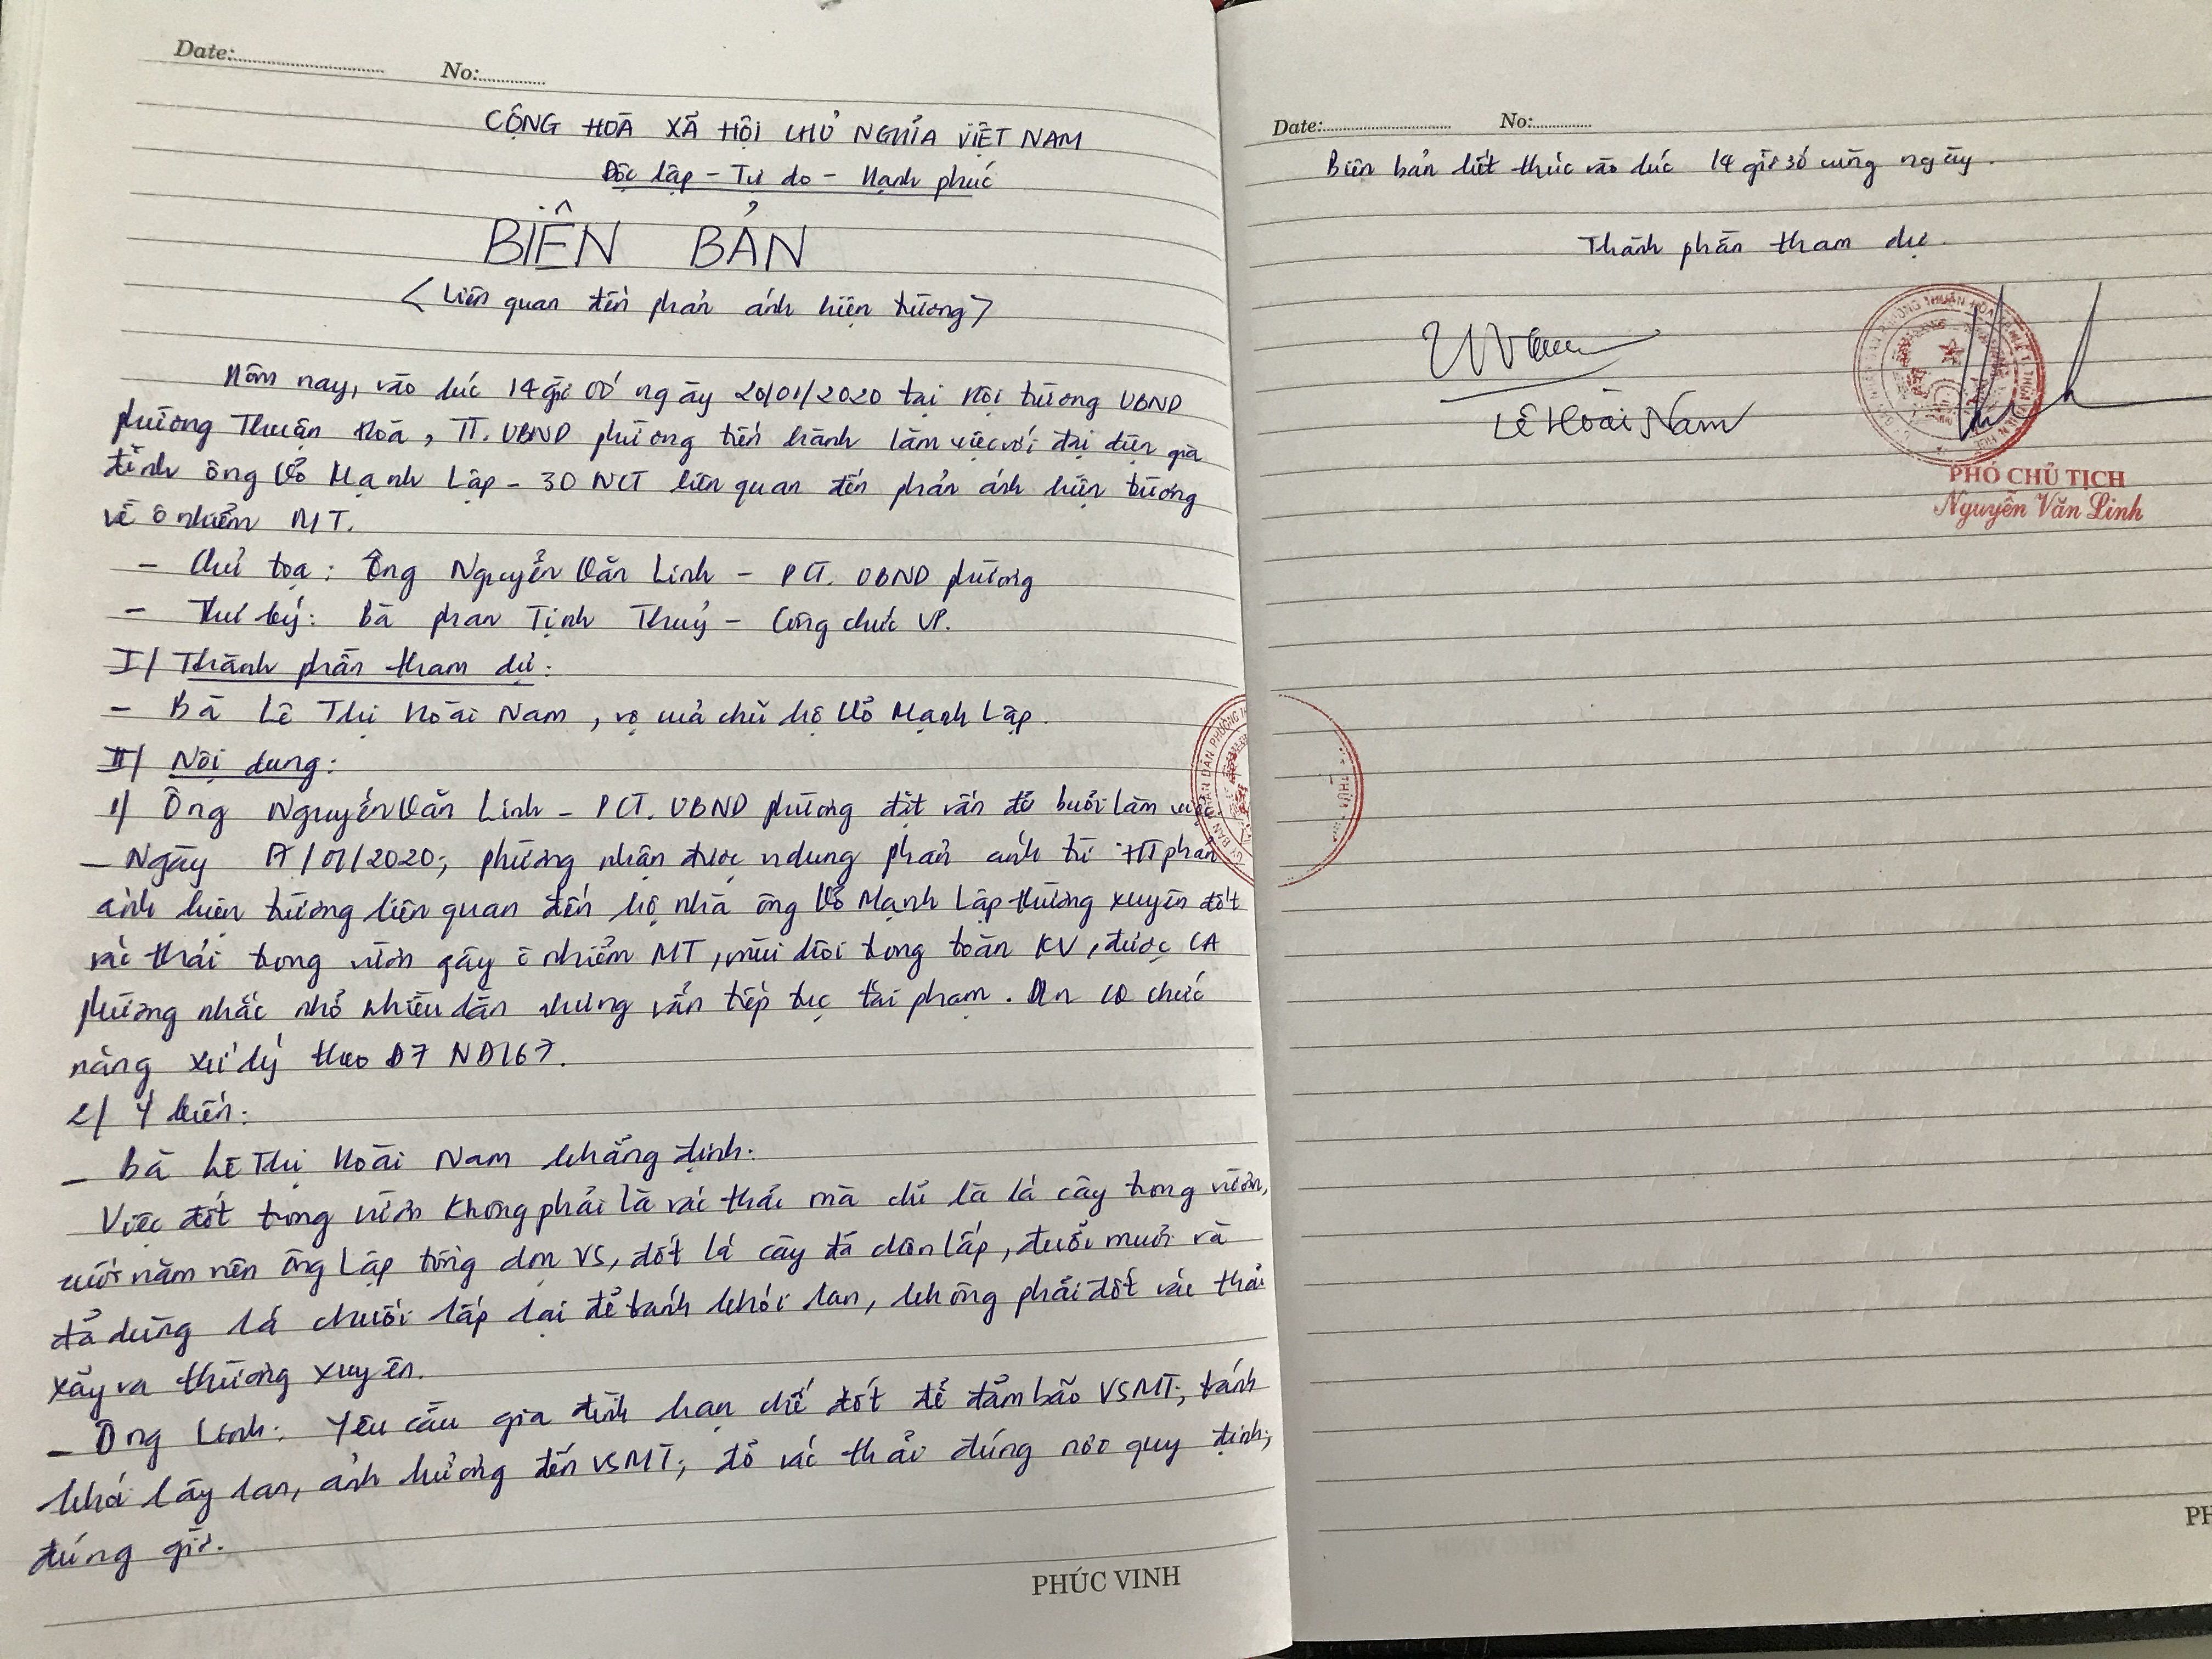 Date:............ No:............
CỘNG HOÀ XÃ HỘI CHỦ NGHĨA VIỆT NAM
Độc lập - Tự do - Hạnh phúc
BIÊN BẢN
< Liên quan đến phản ánh hiện tượng >
Hôm nay, vào lúc 14 giờ 00' ngày 20/01/2020 tại Hội trường UBND
phường Thuận Hoà, TT. UBND phường tiến hành làm việc với đại diện gia
đình ông Võ Mạnh Lập - 30 NCT liên quan đến phản ánh hiện tượng
về ô nhiễm MT.
- Chủ toạ: Ông Nguyễn Văn Linh - PCT. UBND phường
- Thư ký: Bà Phan Tịnh Thuỷ - Công chức VP.
I/ Thành phần tham dự:
- Bà Lê Thị Hoài Nam, vợ của chủ hộ Võ Mạnh Lập.
II/ Nội dung:
1/ Ông Nguyễn Văn Linh - PCT. UBND phường đặt vấn đề buổi làm việc.
- Ngày 17/01/2020; phường nhận được ndung phản ánh từ HT phản
ánh hiện tượng liên quan đến hộ nhà ông Võ Mạnh Lập thường xuyên đốt
rác thải trong vườn gây ô nhiễm MT, mùi trong toàn KV, được CA
phường nhắc nhở nhiều lần nhưng vẫn tiếp tục tái phạm. CQ chức
năng xử lý theo Đ7 NĐ167.
2/ Ý kiến:
- Bà Lê Thị Hoài Nam khẳng định:
Việc đốt trong vườn không phải là rác thải mà chỉ là lá cây trong vườn,
cuối năm nên ông Lập dọn VS, đốt lá cây đã chôn lấp, đuổi muỗi và
đã dùng lá chuối lấp lại để tránh khói lan, không phải đốt rác thải
xẩy ra thường xuyên.
- Ông Linh: Yêu cầu gia đình hạn chế đốt để đảm bảo VSMT; tránh
khói lây lan, ảnh hưởng đến VSMT; đổ rác thải đúng nơi quy định;
đúng giờ.
PHÚC VINH
ỦY BAN NHÂN DÂN PHƯỜNG
Date:............ No:............
Biên bản kết thúc vào lúc 14 giờ 30' cùng ngày.
Thành phần tham dự.
Lê Hoài Nam
PHÓ CHỦ TỊCH
Nguyễn Văn Linh
PH